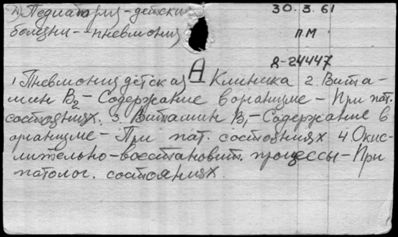 2) Педиатрия-детские
30.3.61
болезни--пневмония
пм
Д-24447
А
1 Пневмония детская Клиника 2. Вита-
мин В2-Содержание в организме-При пат.
состояниях. 3. Витамин В1-Содержание в
организме-При пат. состояниях 4 Окис-
лительно-восстановит. процессы-При
патолог. состояниях.